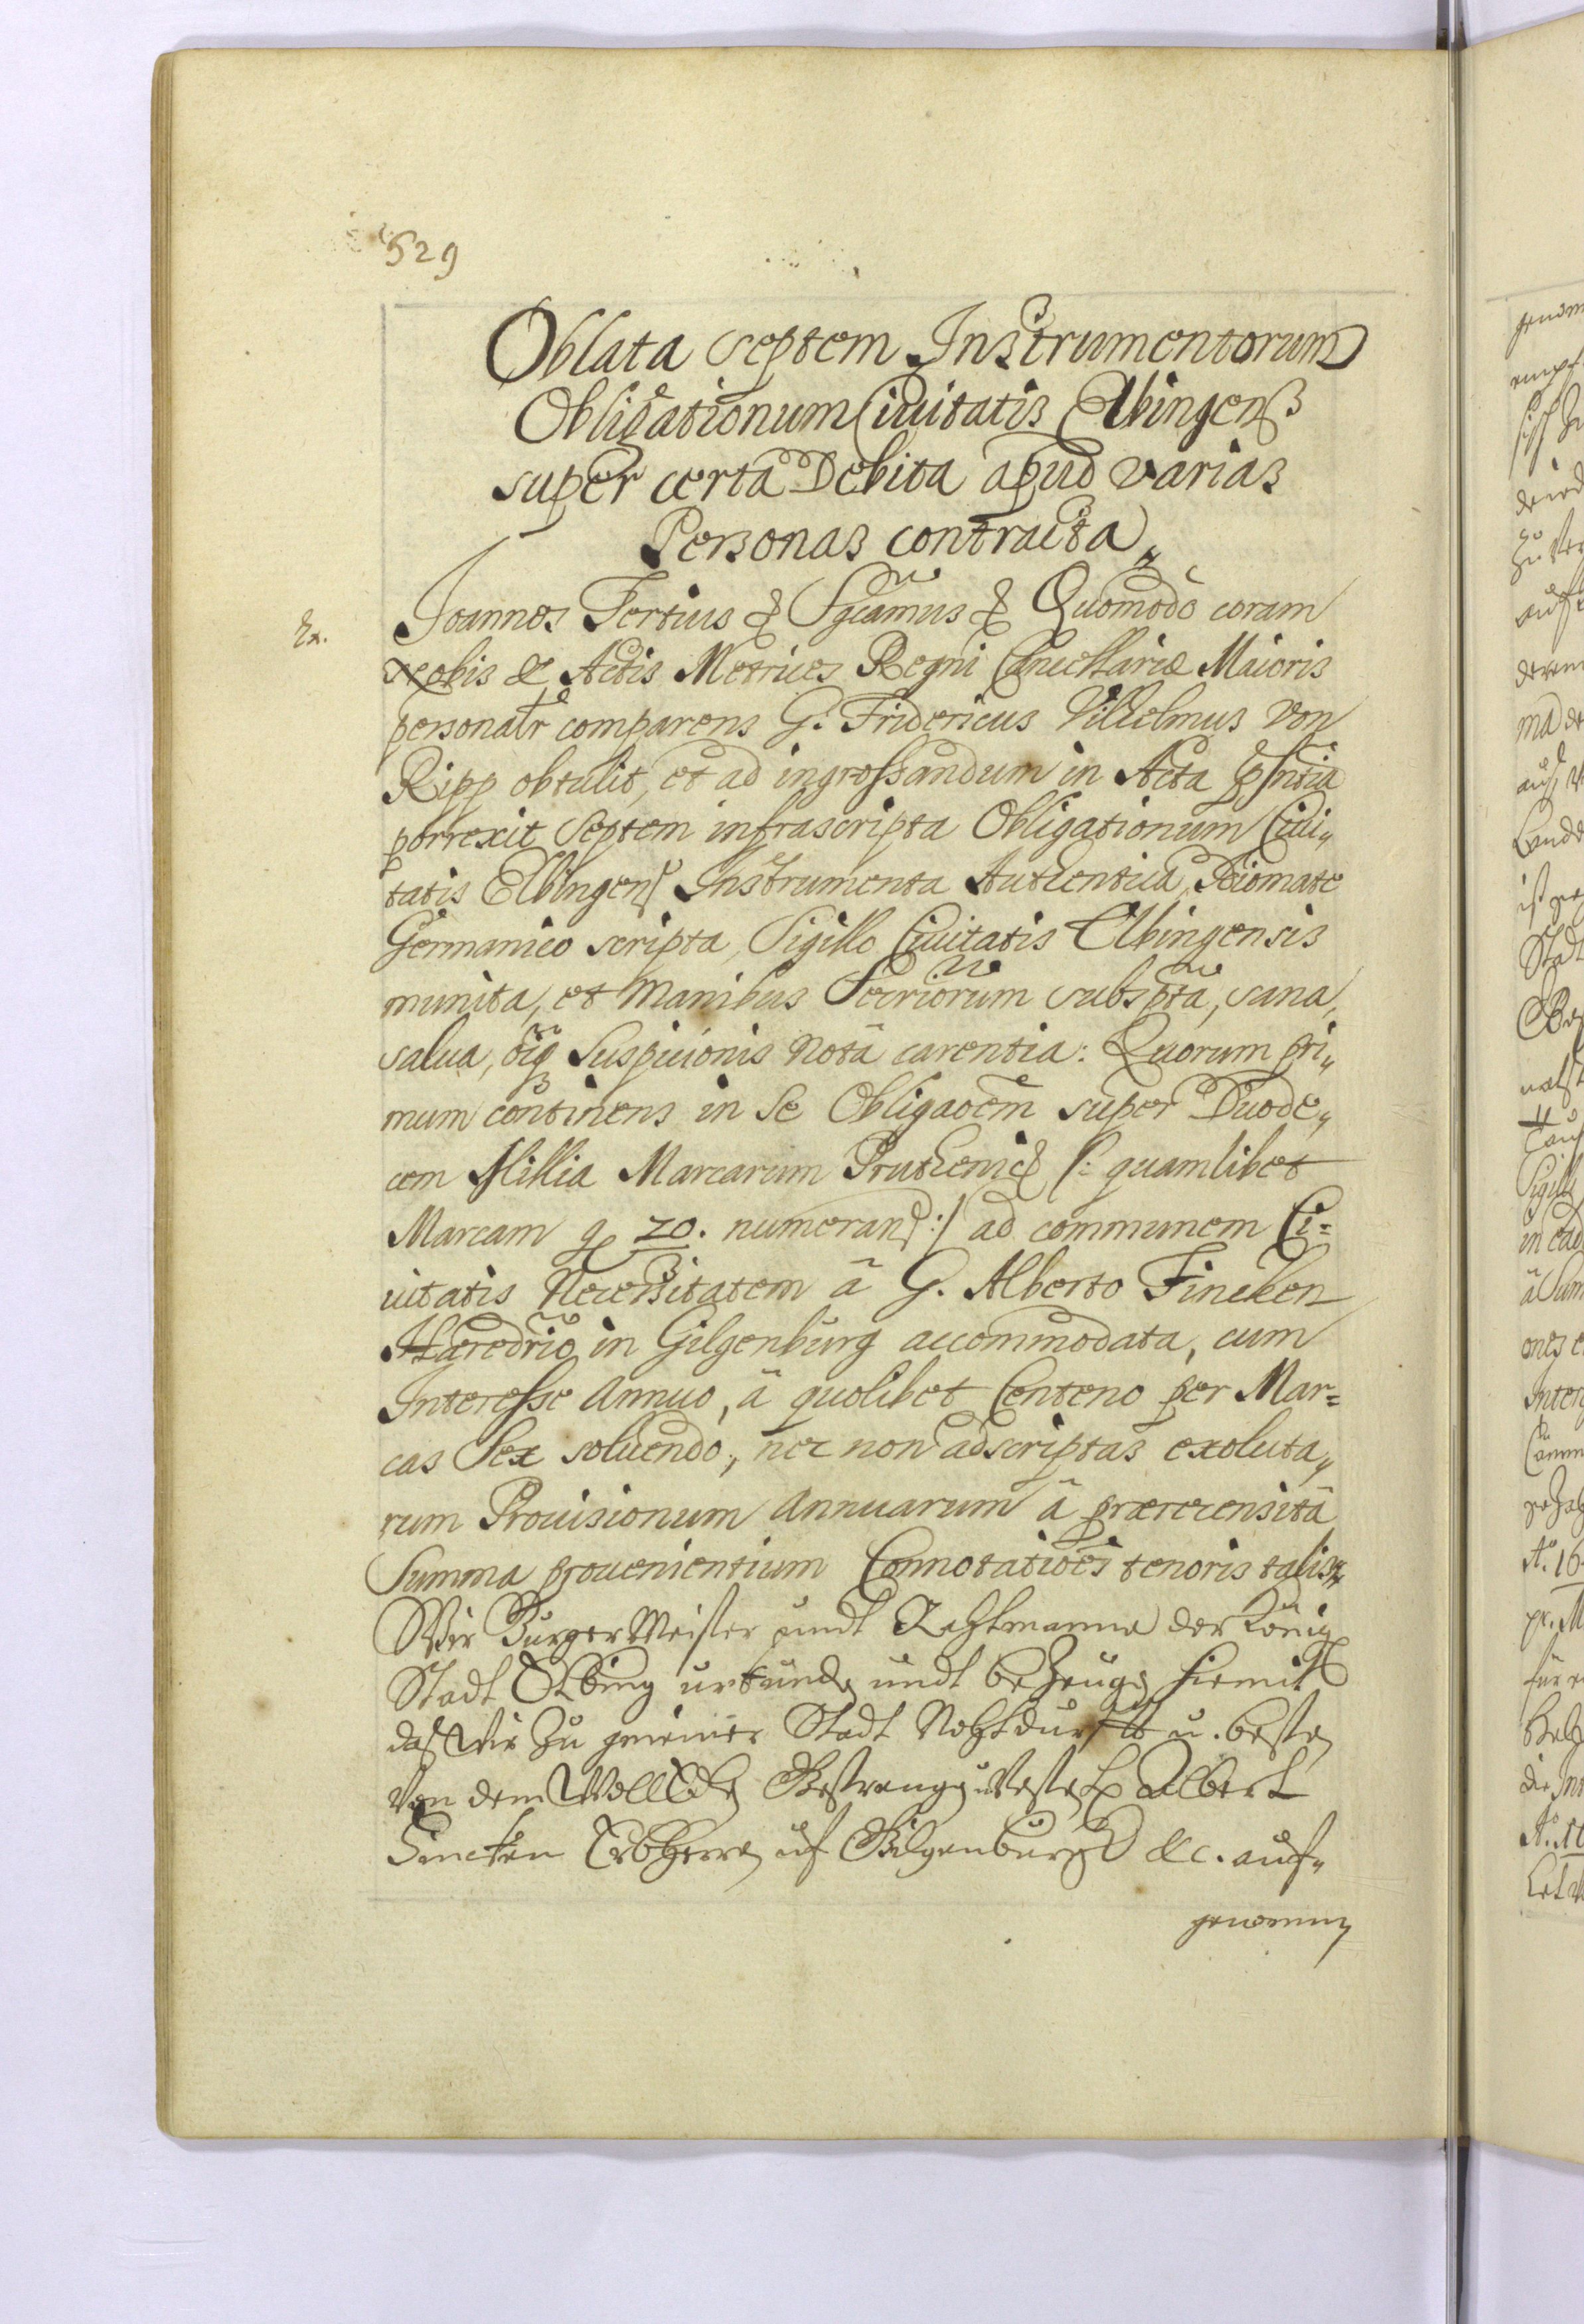 529
Oblata Septem Instrumentorum
Obligationum Ciuitatis Elbingens
super certa Debita apud varias
Personas contracta
Ex.
Joannes Tertius & Sgcamus & Quomodo coram
nobis & Actis Metrices Regni Cancellariæ Maioris
personalr comparens G: Fridericus Vilhelmus von
Ripp obtulit, et ad ingrossandum in Acta pñtia
porrexit Septem infrascripta Obligationum Ciui„
tatis Elbingens Instrumenta Authentica, Idiomate
Germanico scripta, Sigillo Ciuitatis Elbingensis
munita, et Manibus Secriorum subspta, sana,
salua, oiq Suspicionis notâ carentia: Quorum pri„
mum continens in se Obligaoem super Duode„
cem Millia Marcarum Pruthenic /: quamlibet
Marcam p 20. numerand :/ ad communem Ci=
uitatis Necessitatem â G. Alberto Fincken
Haeredrio in Gilgenburg accommodata, cum
Interesse Annuo, â quolibet Centeno per Mar=
cas Sex soluendo, nec non adscriptas exoluta„
rum Prouisionum Annuarum â præcensitâ
Summa prouenientium Connotatioes tenoris talis
Wir BurgerMeister undt Rahtmanne der König
Stadt Elbing urkunden undt beZeugen hiemit
daß Wir Zu gemeiner Stadt Nohtdurfft u. besten
Von dem WollEdlen Gestrengen Vesten H Albert
Fincken Erbherrn uf Gilgenburg &c. auf„
genommen